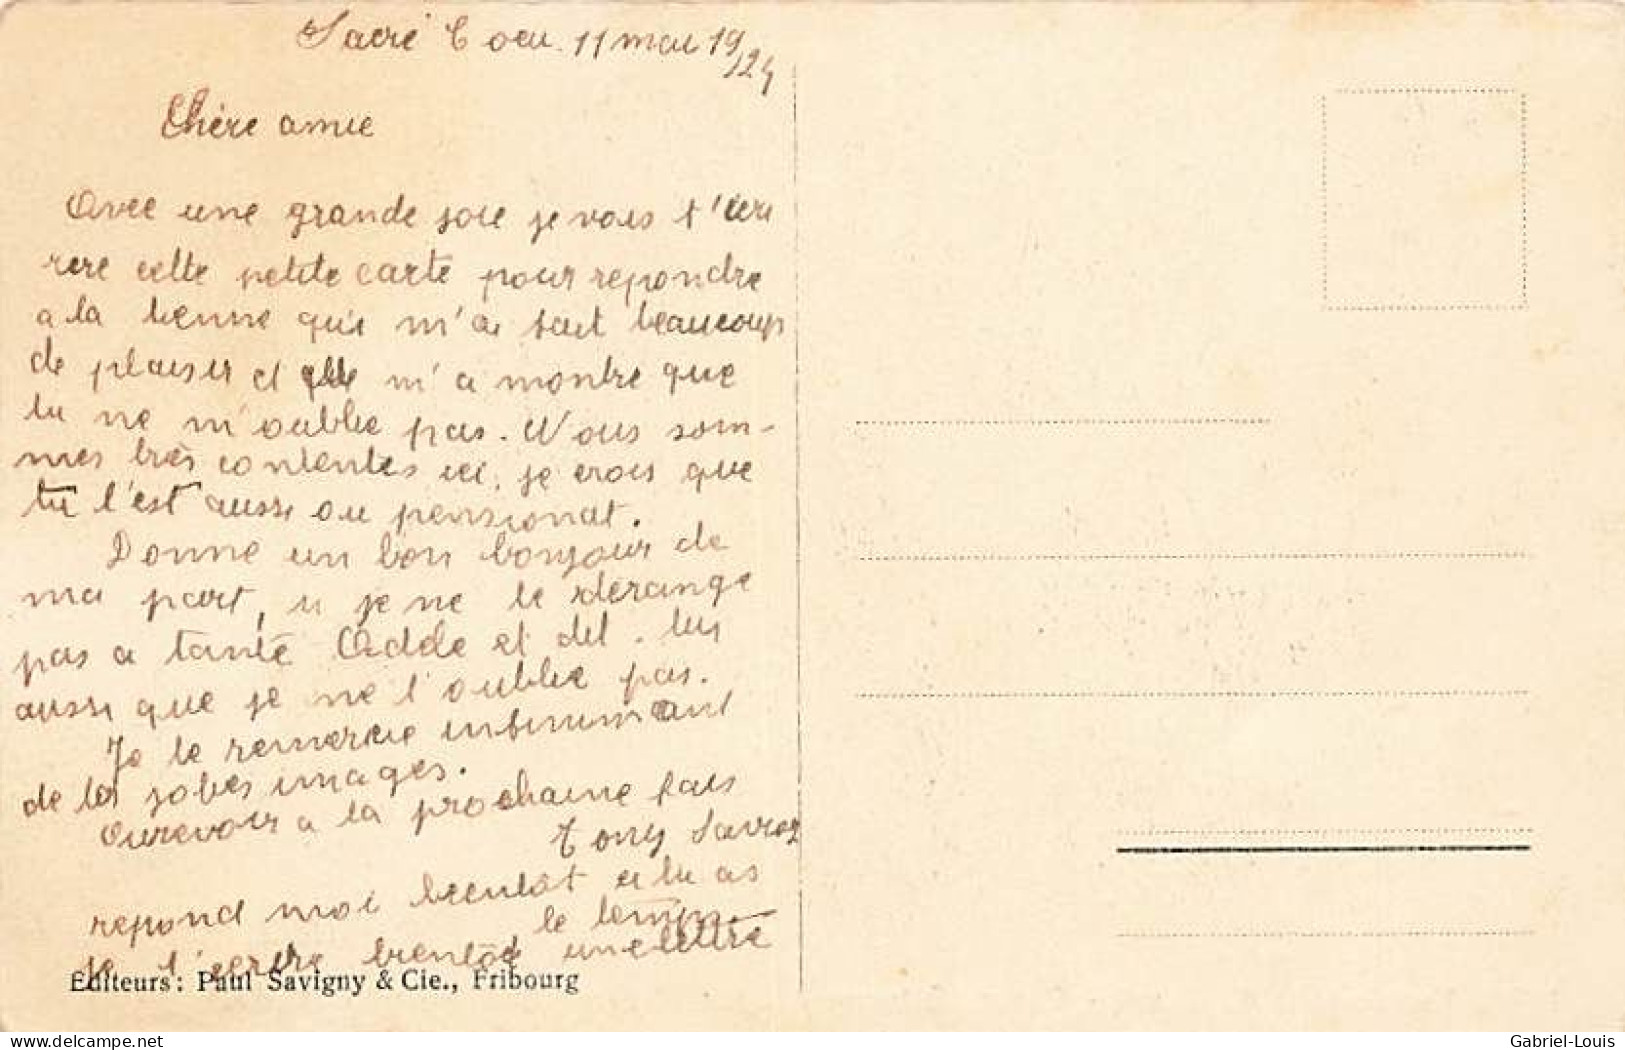 Sacré Coeu. 11 mai 19/24
Chère amie
Avec une grande joie je vais t'écri
rere cette petite carte pour repondre
a la tienne qui m'a fait beaucoup
de plaisir et elle m'a montre que
tu ne m'oublie pas. Nous som-
mes très contentes ici, je crois que
tu l'est aussi au pensionat.
Donne un bon bonjour de
ma part, si je ne te derange
pas a tante Adde et dit. lui
aussi que je ne l'oublie pas.
Je te remercie infiniment
de tes jolies images.
Aurevoir a la prochaine fois
Tony Savroz
repond moi bientôt si tu as
le temps
je t'ecrire bientôt une lettre
Editeurs: Paul Savigny & Cie., Fribourg
delcampe.net
Gabriel-Louis